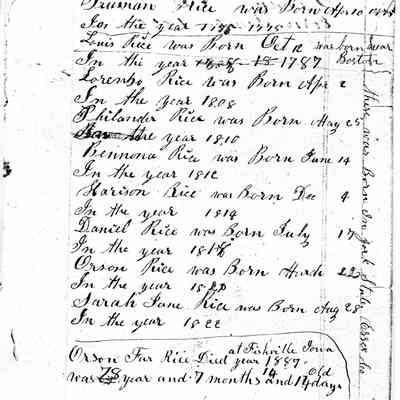 Truman Rice was Born Apr 10
In the year 1775
Louis Rice was Born Oct 12 was born near
In the year 1787 Boston
Lorenso Rice was Born Apr 2
In the year 1808
Philander Rice was Born May 25
the year 1810
Bennona Rice was Born June 14
In the year 1812
Harison Rice was Born Dec 4
In the year 1814
Daniel Rice was Born July 17
In the year 1818
Orson Rice was Born March 22
In the year 1820
Sarah Jane Rice was Born Aug 28
In the year 1822
these was Born In york State
Orson Far Rice Died at Fishville Iowa
year 1887
was 78 year and 7 months and 14 days Old